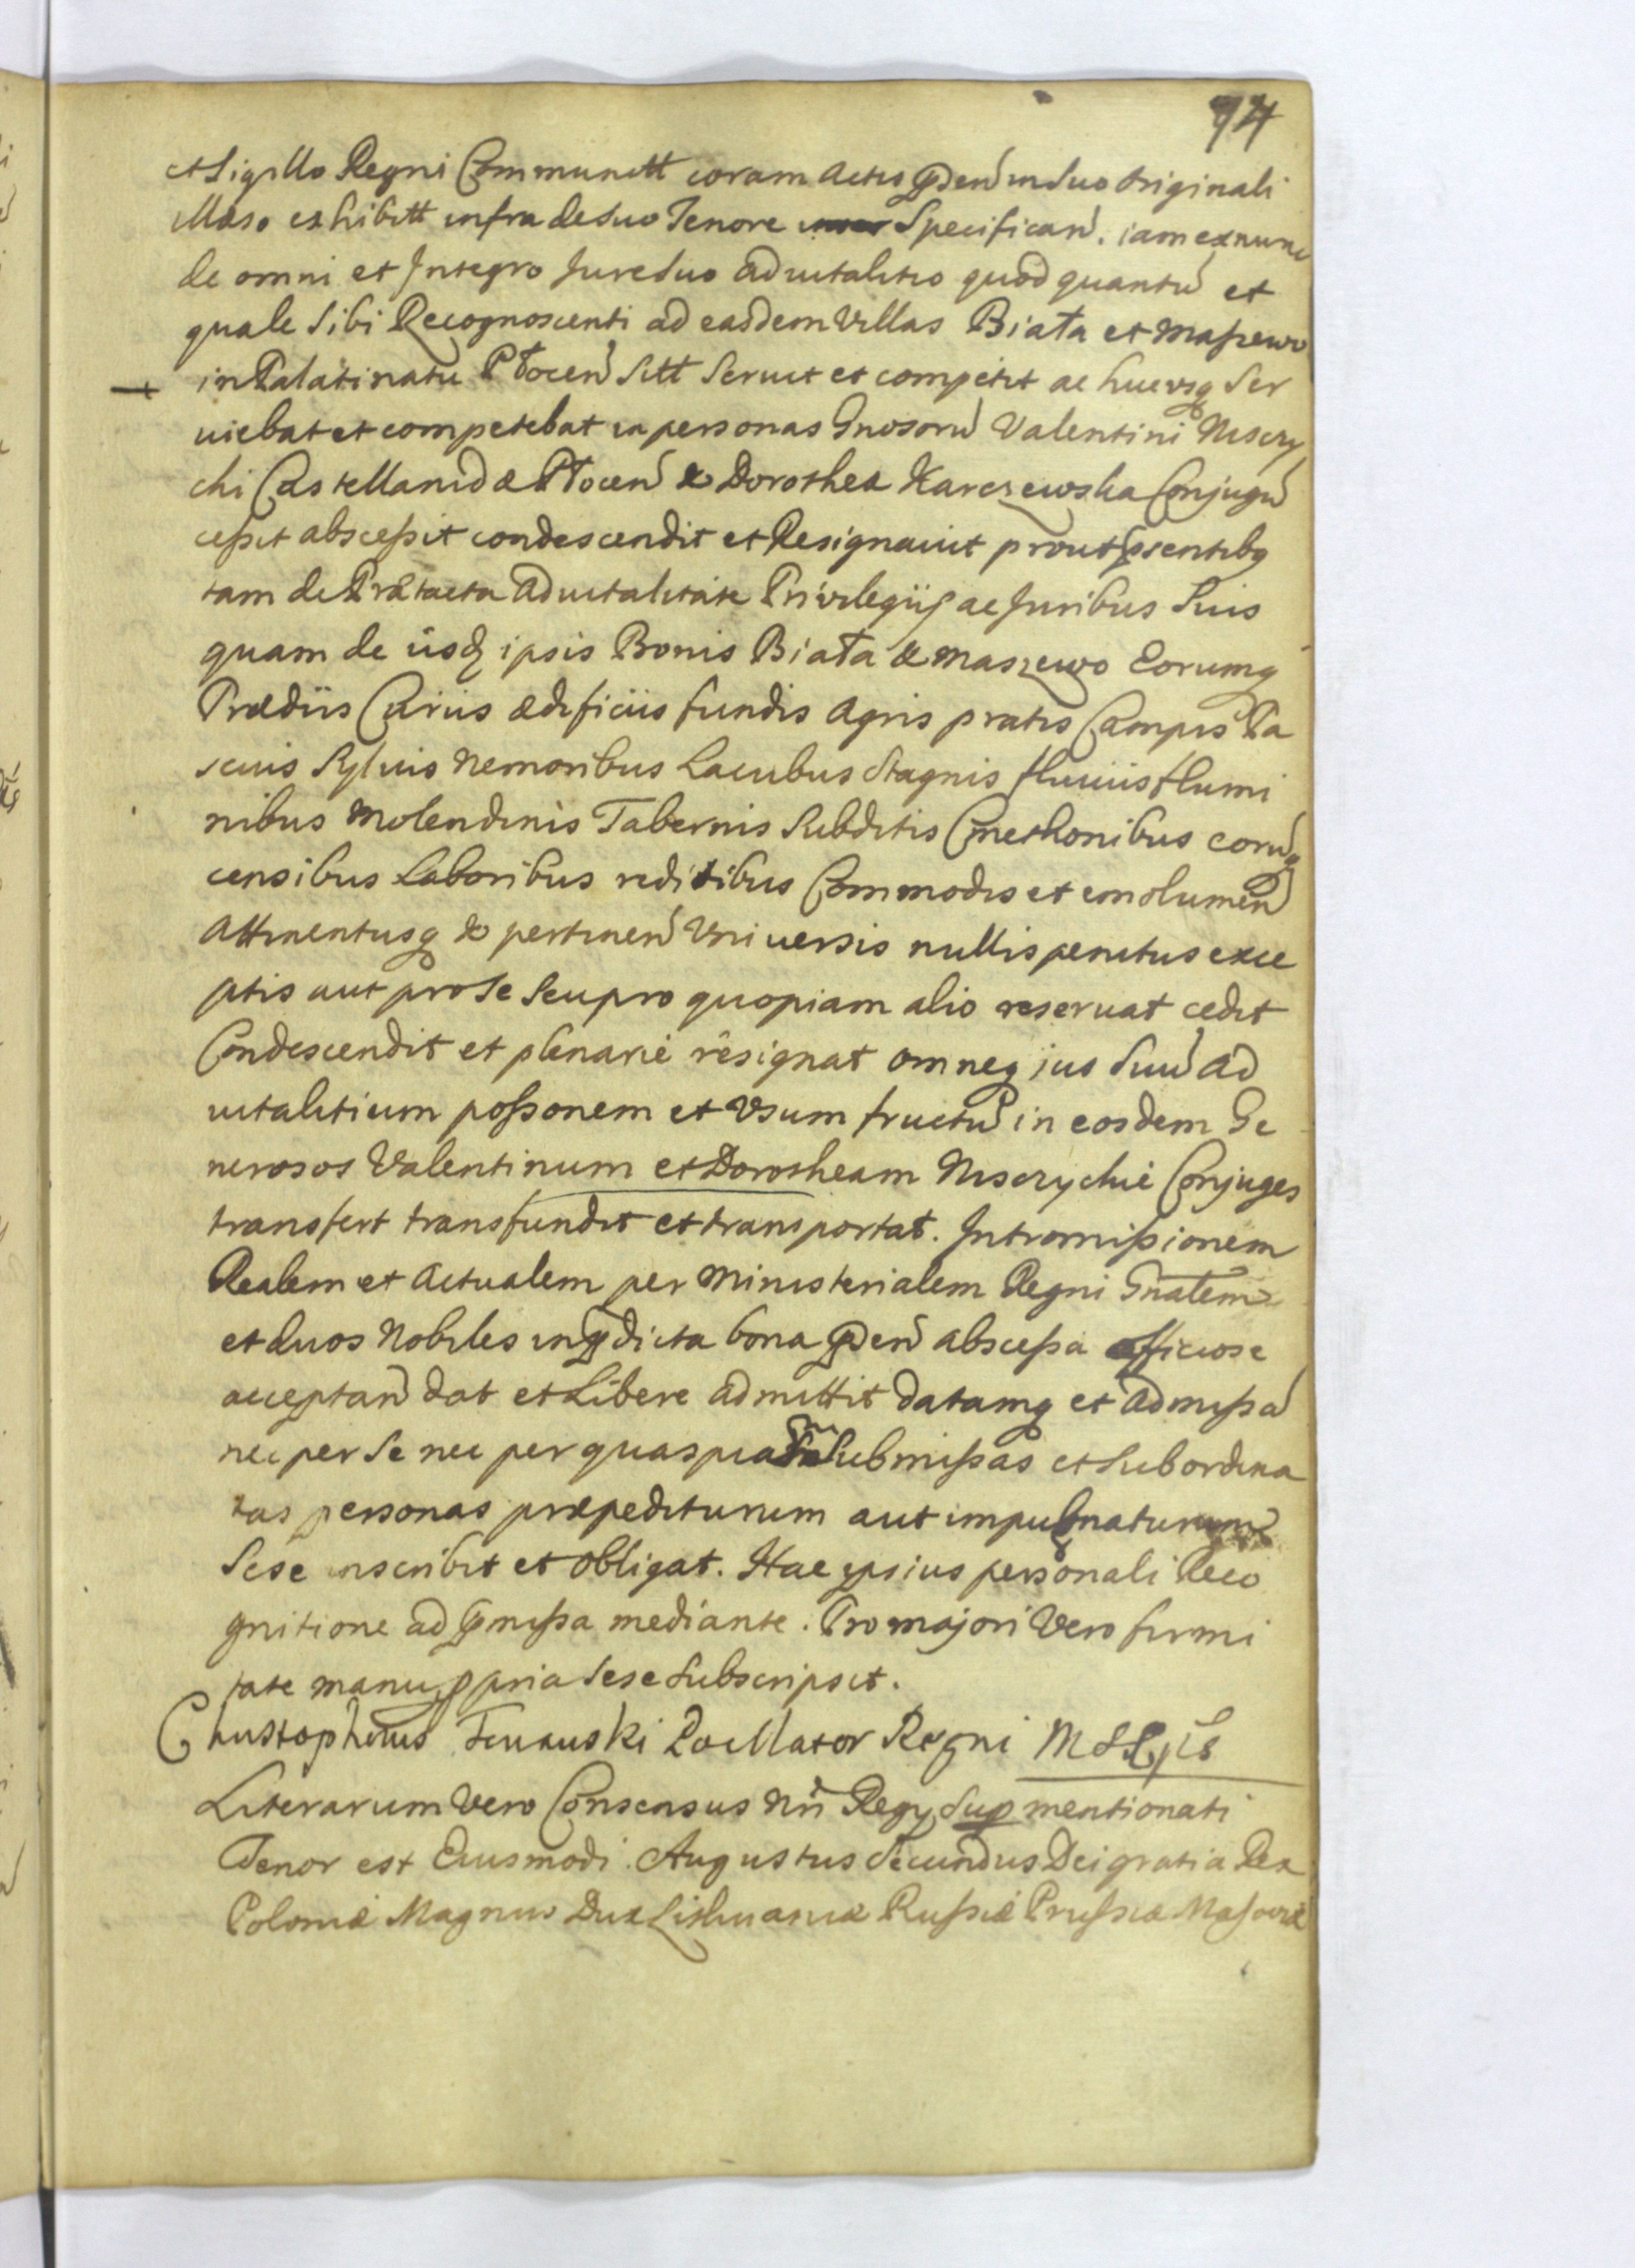 74
et Sigillo Regni Communitt coram Actis pñden in Suo Originali
illaso exhibitt infra de Suo Tenore Specifican. iam exnunc
de omni et Integro Jure Suo advitalitio quod quantũ et
quale Sibi Recognoscenti ad easdem Villas Biała et Maszewo
in Palatinatu Płocen Sitt Servit et competit ac hucusq Ser
viebat et competebat in personas Gnosorũ Valentini Niszczy
chi Castellanidæ Płocen & Dorothea Karczewska Conjugũ
cessit abscessit condescendit et Resignavit prout pñsentibq
tam de Prætacta Advitalitate Privilegijs ac Juribus Suis
quam de iisd ipsis Bonis Biała & Maszewo Eorumq
Prædiis Curiis ædificiis fundis Agris pratis Campis Pa
scuis Sylvis Nemoribus Lacubus Stagnis fluviis flumi
nibus Molendinis Tabernis Subditis Cmethonibus eorũq
censibus Laboribus reditibus Commodis et emolumen
Attinentiisq & pertinen Universis nullis penitus exce
ptis aut pro Se Seu pro quopiam alio reservat cedit
Condescendit et plenarie resignat omneq jus Suũ ad
vitalitium possonem et Usum fructũ in eosdem Ge
nerosos Valentinum et Dorotheam Niszczychie Conjuges
transfert transfundit et transportat. Intromissionem
Realem et Actualem per Ministerialem Regni Gnalem
et duos Nobiles in pdicta bona pñden abscessa officiose
acceptan dat et Libere admittit datamq et Admissã
nec per Se nec per quaspiam Submissas et Subordina
tas personas præpediturum aut impugnaturum
Sese inscribit et obligat. Hac ipsius personali Reco
gnitione ad pmissa mediante. Pro majori Vero firmi
tate manu ppria Sese Subscripsit.
Christophorus Pocillator Regni
Literarum Vero Consensus Regij Sup mentionati
Tenor est Eiusmodi. Augustus Secundus Dei gratia Rex
Poloniæ Magnus Dux Lithuaniæ Russiæ Prussiæ Masoviæ